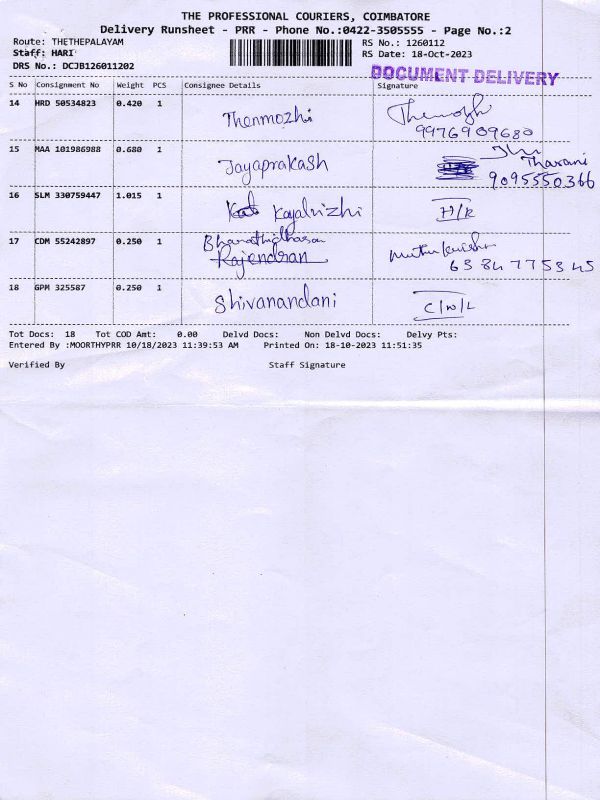 THE PROFESSIONAL COURIERS, COIMBATORE
Delivery Runsheet - PRR - Phone No.:0422-3505555 - Page No.:2
Route: THETHEPALAYAM RS No.: 1260112
Staff: HARI RS Date: 18-Oct-2023
DRS No.: DCJB126011202 DOCUMENT DELIVERY
S No Consignment No Weight PCS Consignee Details Signature
14 HRD 50534823 0.420 1 Thenmozhi
9976909680
15 MAA 101986988 0.680 1 Jayaprakash Tharani
9095550366
16 SLM 330759447 1.015 1 Kayalvizhi H/R
17 CDM 55242897 0.250 1 Bharathidhasan
Rajendran
6384775345
18 GPM 325587 0.250 1 Shivanandani
Tot Docs: 18 Tot COD Amt: 0.00 Delvd Docs: Non Delvd Docs: Delvy Pts:
Entered By :MOORTHYPRR 10/18/2023 11:39:53 AM Printed On: 18-10-2023 11:51:35
Verified By Staff Signature